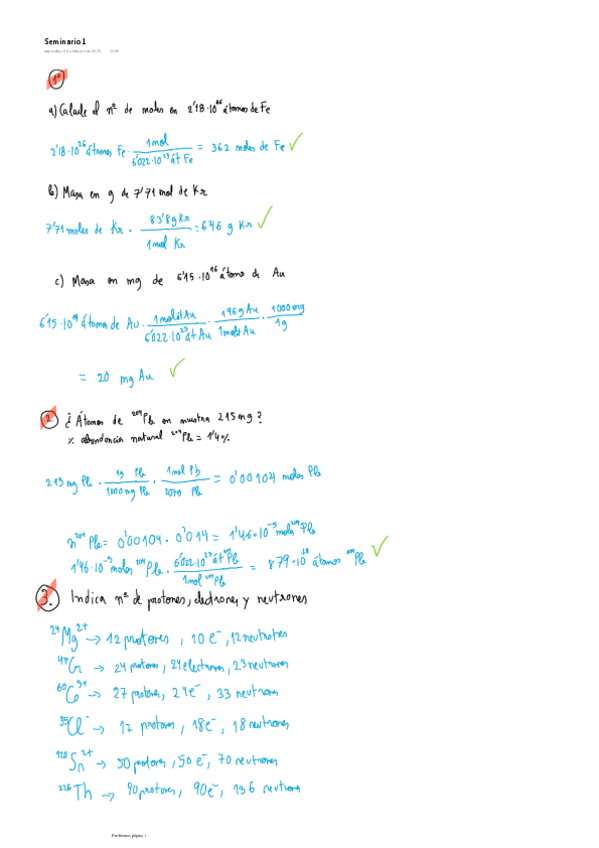 Seminario 1
1º
a) Calcule el nº de moles en 2'18·10²⁶ átomos de Fe
2'18·10²⁶ átomos Fe · 1mol / 6'022·10²³ át Fe = 362 moles de Fe ✓
b) Masa en g de 7'71 mol de Kr
7'71 moles de Kr · 83'8g Kr / 1mol Kr = 646 g Kr ✓
c) Masa en mg de 6'15·10¹⁶ átomo de Au
6'15·10¹⁹ átomo de Au · 1mol át Au / 6'022·10²³ át Au · 196g Au / 1mol át Au · 1000mg / 1g
= 20 mg Au ✓
2. ¿Átomos de ²⁰⁴Pb en muestra 215mg?
% abundancia natural ²⁰⁴Pb = 1'4%
215mg Pb · 1g Pb / 1000mg Pb · 1mol Pb / 207g Pb = 0'00104 moles Pb
n²⁰⁴Pb = 0'00104 · 0'014 = 1'46·10⁻⁵ moles ²⁰⁴Pb
1'46·10⁻⁵ moles ²⁰⁴Pb · 6'022·10²³ át ²⁰⁴Pb / 1mol ²⁰⁴Pb = 8'79·10¹⁸ átomos ²⁰⁴Pb ✓
3. Indica nº de protones, electrones y neutrones
²⁴Mg²⁺ → 12 protones, 10 e⁻, 12 neutrones
⁴⁷Cr → 24 protones, 24 electrones, 23 neutrones
⁶⁰Co³⁺ → 27 protones, 24 e⁻, 33 neutrones
³⁵Cl⁻ → 17 protones, 18 e⁻, 18 neutrones
¹²⁰Sn²⁺ → 50 protones, 50 e⁻, 70 neutrones
²²⁶Th → 90 protones, 90e⁻, 136 neutrons